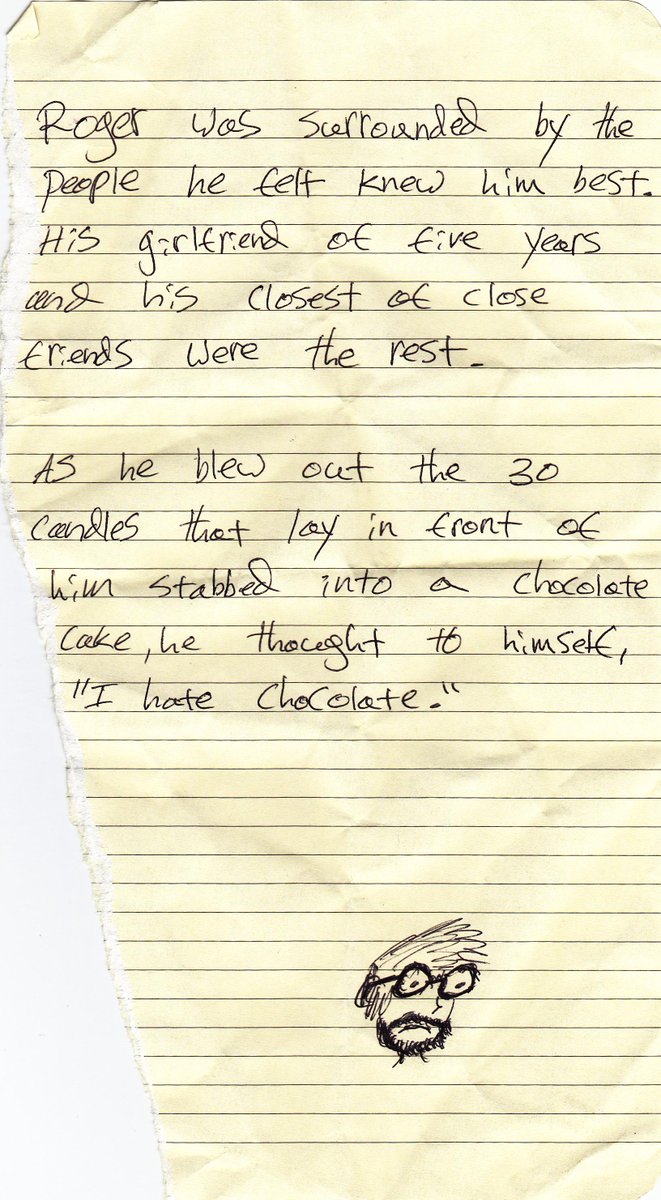 Roger was surrounded by the
people he felt knew him best.
His girlfriend of five years
and his closest of close
friends were the rest.
As he blew out the 30
candles that lay in front of
him stabbed into a chocolate
cake, he thought to himself,
"I hate chocolate."